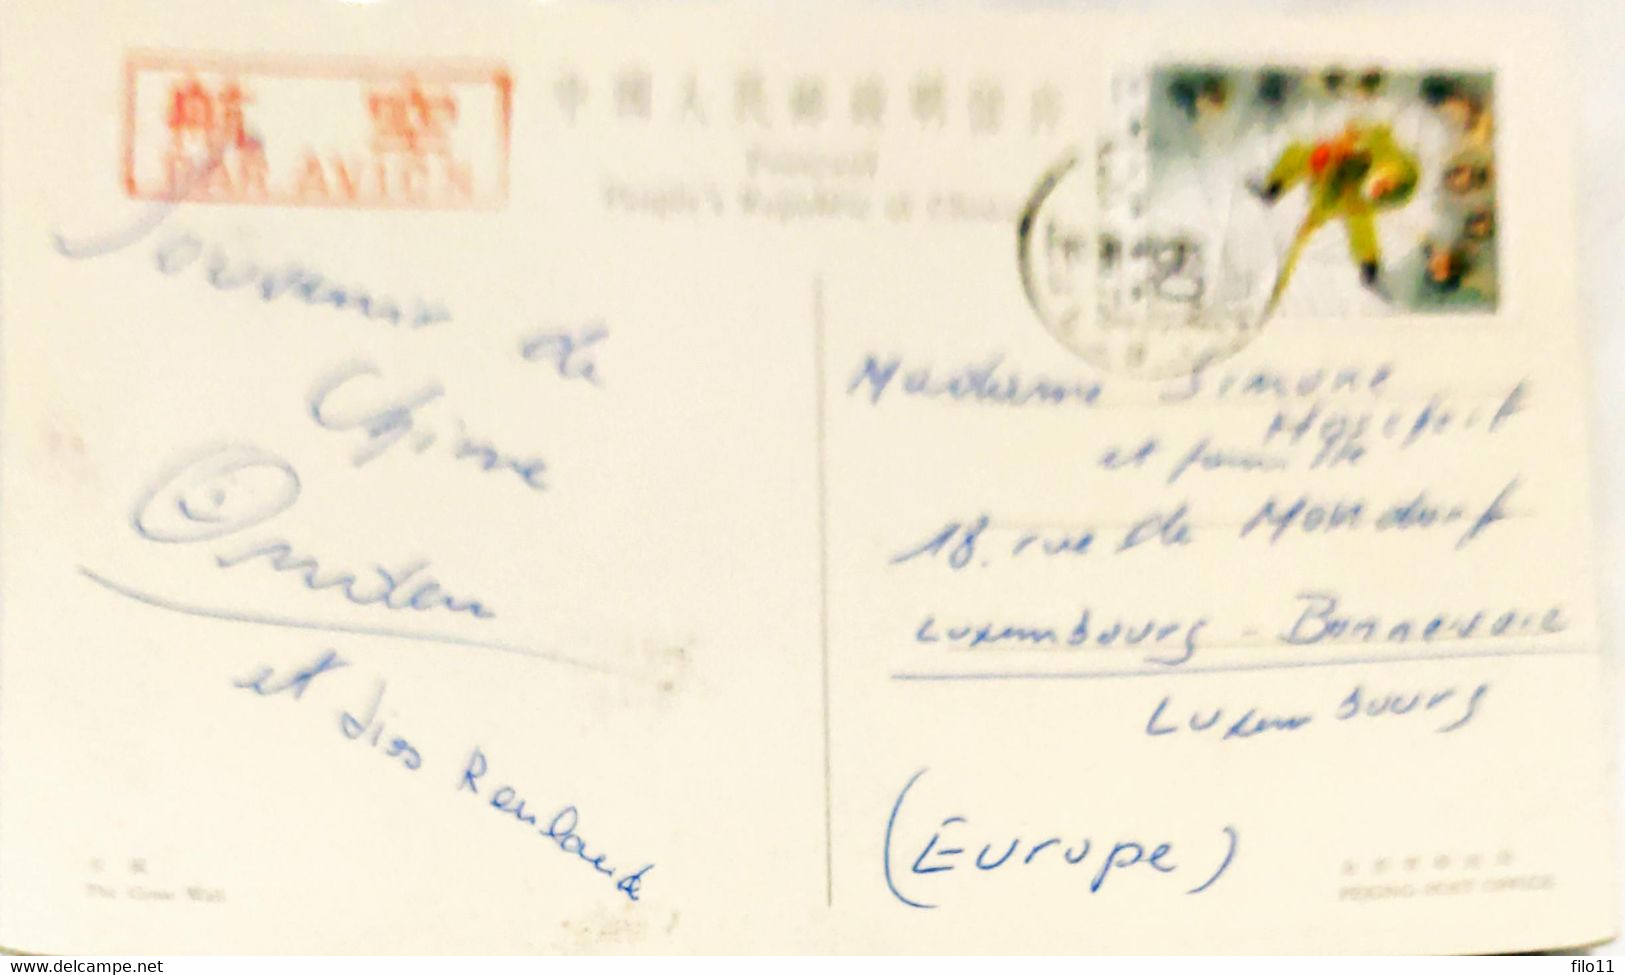 航空
PAR AVION
中國人民郵政明信片
Postcard
People's Republic of China
80
Souvenir de
Chine
et
Madame Simone
et famille
18. rue de Mondorf
Luxembourg - Bonnevoie
Luxembourg
(Europe)
長城
The Great Wall
PEKING POST OFFICE
delcampe.net
filo11